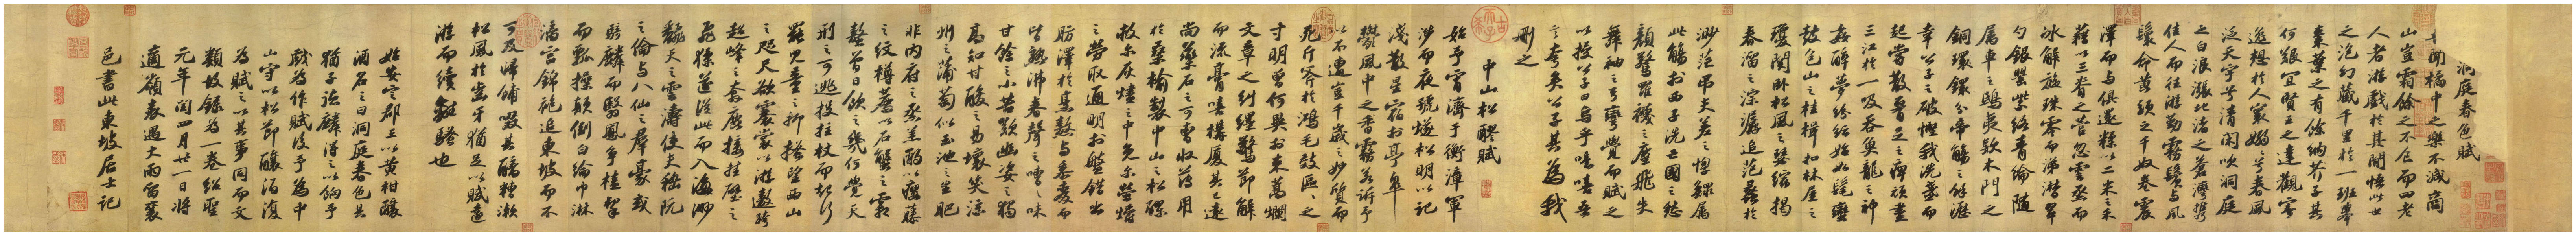 洞庭春色賦
吾聞橘中之樂不減商
山豈霜餘之不食而四老
人者游戲於其間悟此世
之泡幻藏千里於一班舉
棗葉之有餘納芥子其
何艱宜賢王之達觀寄
逸想於人寰嫋嫋兮春風
泛天宇兮清閑吹洞庭
之白浪漲北渚之蒼灣攜
佳人而往游勤霧鬢與風
鬟命黃頭之千奴卷震
澤而與俱還糅以二米之禾
藉以三脊之菅忽雲烝而
冰解旋珠零而涕潸翠
勺銀罌紫絡青綸隨
屬車之鴟夷款木門之
銅鐶分帝觴之餘瀝
幸公子之破慳我洗盞而
起嘗散腰足之痺頑盡
三江於一吸吞魚龍之神
姦醉夢紛紜始如髦蠻
鼓包山之桂楫扣林屋之
瓊關臥松風之瑟縮揭
春溜之淙潺追范蠡於
渺茫弔夫差之惸鰥屬
此觴於西子洗亡國之愁
顏驚羅襪之塵飛失
舞袖之弓彎覺而賦之
以授公子曰烏乎噫嘻吾
言夸矣公子其為我
刪之
中山松醪賦
始予宵濟于衡漳軍
涉而夜號燧松明以記
淺散星宿於亭皋
鬱風中之香霧若訴予
以不遭豈千歲之妙質而
死斤斧於鴻毛效區區之
寸明曾何異於束蒿爛
文章之糾纏驚節解
而流膏嘻構廈其已遠
尚藥石之可曹收薄用
於桑榆製中山之松醪
救爾灰燼之中免爾螢爝
之勞取通明於盤錯出
肪澤於烹熬與黍麥而
皆熟沸舂聲之嘈嘈味
甘餘之小苦歎幽姿之獨
高知甘酸之易壞笑涼
州之蒲萄似玉池之生肥
非內府之烝羔酌以癭藤
之紋樽薦以石蟹之霜
螯曾日飲之幾何覺天
刑之可逃投拄杖而起行
罷兒童之抑搔望西山
之咫尺欲褰裳以游遨跨
超峰之奔鹿接挂壁之
飛猱遂從此而入海渺
翻天之雲濤使夫嵇阮
之倫與八仙之群豪或
騎麟而翳鳳爭榼挈
而瓢操顛倒白綸巾淋
漓宮錦袍追東坡而不
可及歸餔歠其醨糟漱
松風於齒牙猶足以賦遠
游而續離騷也
始安定郡王以黃柑釀
酒名之曰洞庭春色其
猶子德麟得之以餉予
戲為作賦後予為中
山守以松節釀酒復
為賦之以其事同而文
類故錄為一卷紹聖
元年閏四月廿一日將
適嶺表遇大雨留襄
邑書此東坡居士記